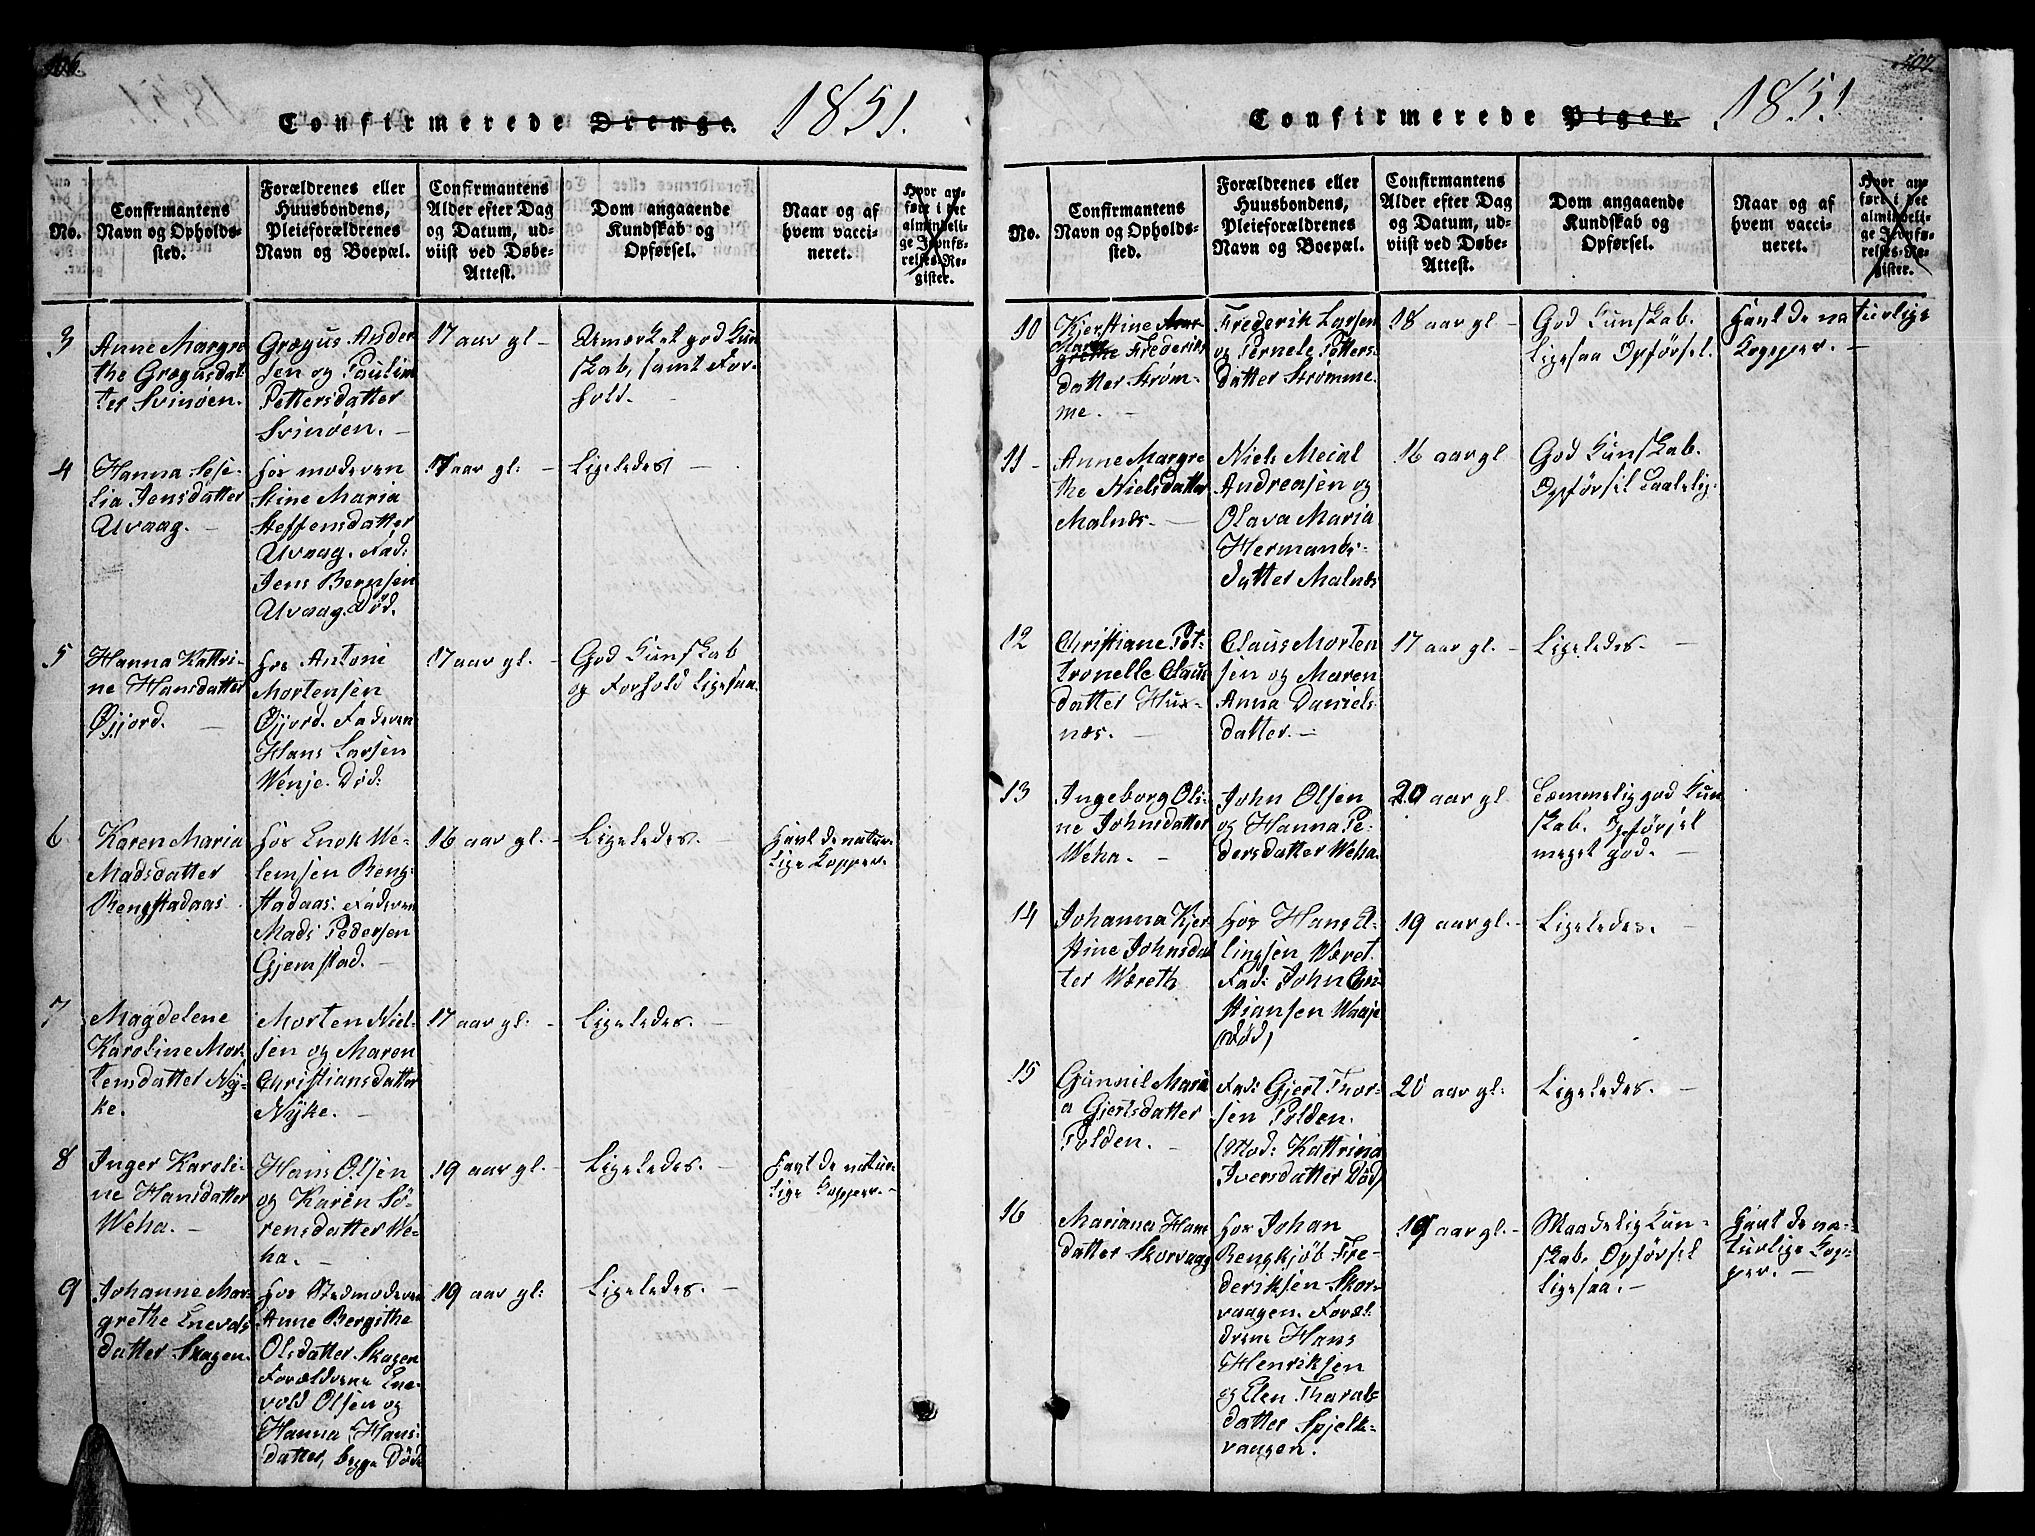 Confirmerede Drenge. 1851.
No.
Confirmantens
Navn og Opholds-
sted.
Forældrenes eller
Huusbondens,
Pleieforældrenes
Navn og Boepæl.
Confirmantens
Alder efter Dag
og Datum, ud-
viist ved Døbe-
Attest.
Dom angaaende
Kundskab og
Opførsel.
Naar og af
hvem vacci-
neret.
Hvor an-
ført i det
almindeli-
ge Jevnfø-
relses-Re-
gister.
3
Anne Margre
the Grægusdat-
ter Svinøen.
Grægus Ander
sen og Paulin
Pettersdatter
Svinøen. —
17 aar gl —
Umærket god Kun
skab, samt For-
hold. —
4
Hanna Sese-
lia Jensdatter
Uvaag. —
Hos moderen
Stine Maria
Steffensdatter
Uvaag. Fad:
Jens Berntsen
Uvaag. Død.
17 aar gl: —
Ligeledes —
5
Hanna Kattri-
ne Hansdatter
Øjjord. —
Hos Antoni
Mortensen
Øjjord. Faderen
Hans Larsen
Wenje. Død:
17 aar gl. —
God Kunskab
og Forhold Ligesaa.
6
Karen Maria
Madsdatter
Rengstadaas
Hos Enok We-
lemsen Reng-
stadaas: Faderen
Mads Pedersen
Gjemstad. —
16 aar gl. —
Ligeledes. —
Havt de natur-
lige Kopper. —
7
Magdelene
Karoline Mor-
tensdatter Ny-
ke.
Morten Niel-
sen og Maren
Christiansdatter
Nyke. —
17 aar gl: —
Ligeledes. —
8
Inger Karoli-
ne Hansdatter
Weha. —
Hans Olsen
og Karen Sö-
rensdatter We-
ha. —
19 aar gl. —
Ligeledes. —
Havt de natur-
lige Kopper. —
9
Johanne Mar-
grethe Enevols
datter Skagen.
Hos Stedmoderen
Anne Bergithe
Olsdatter Skagen
Forældrene Ene-
vold Olsen og
Hanna Hans-
datter, begge Døde
19 aar gl:
Ligeledes. —
507
Confirmerede Piger. 1851
No.
Confirmantens
Navn og Opholds-
sted.
Forældrenes eller
Huusbondens,
Pleieforældrenes
Navn og Boepæl.
Confirmantens
Alder efter Dag
og Datum, ud-
viist ved Døbe-
Attest.
Dom angaaende
Kundskab og
Opførsel.
Naar og af
hvem vacci-
neret.
Hvor an-
ført i det
almindeli-
ge Jevnfø-
relses-Re-
gister.
10
Kjerstine
Mar
grethe Frederiks
datter Strøm-
me. —
Frederik Larsen
og Pernele Petters-
datter Strømme.
18 aar gl —
God Kunskab.
Ligesaa Opførsel.
Havt de naturlige
Kopper. —
11 —
Anne Margre
the Nielsdatter
Malnæs. —
Niels Meial
Andreasen og
Olava Maria
Hermands-
datter Malnæs
16 aar gl
God Kunskab.
Opførsel Taalelig.
12
Christiane Pet-
tronelle Claus
datter Hus-
næs. —
Claus Morten
sen og Maren
Anna Daniels-
datter. —
17 aar gl. —
Ligeledes. —
13
Ingeborg Oli-
ne Johnsdatter
Weha. —
John Olsen
og Hanna Pe-
dersdatter Weha.
20 aar gl
Temmelig god Kun
skab. Opførsel
meget god. —
14
Johanna Kjer
stine Johnsdat
ter Wæreth
Hos Hans El-
lingsen Wæret.
Fad: John Chri-
stiansen Waaje
(Død)
19 aar gl. —
Ligeledes. —
15
Gunnil Mari
a Gjertsdatter
Polden. —
Fad: Gjert Thor-
sen Polden.
(Mod: Kattrina
Iversdatter Død)
20 aar gl:
Ligeledes. —
16
Mariana Hans
datter Skorvaag
Hos Johan
Rengkjöb Fre-
deriksen Skor-
vaagen. Foræl
drene Hans
Henriksen
og Elen Tharals-
datter Spjelk-
vaagen.
19 aar gl. —
Maadelig Kun-
skab. Opførsel
Ligesaa. —
Havt de na-
turlige Kop-
per. —